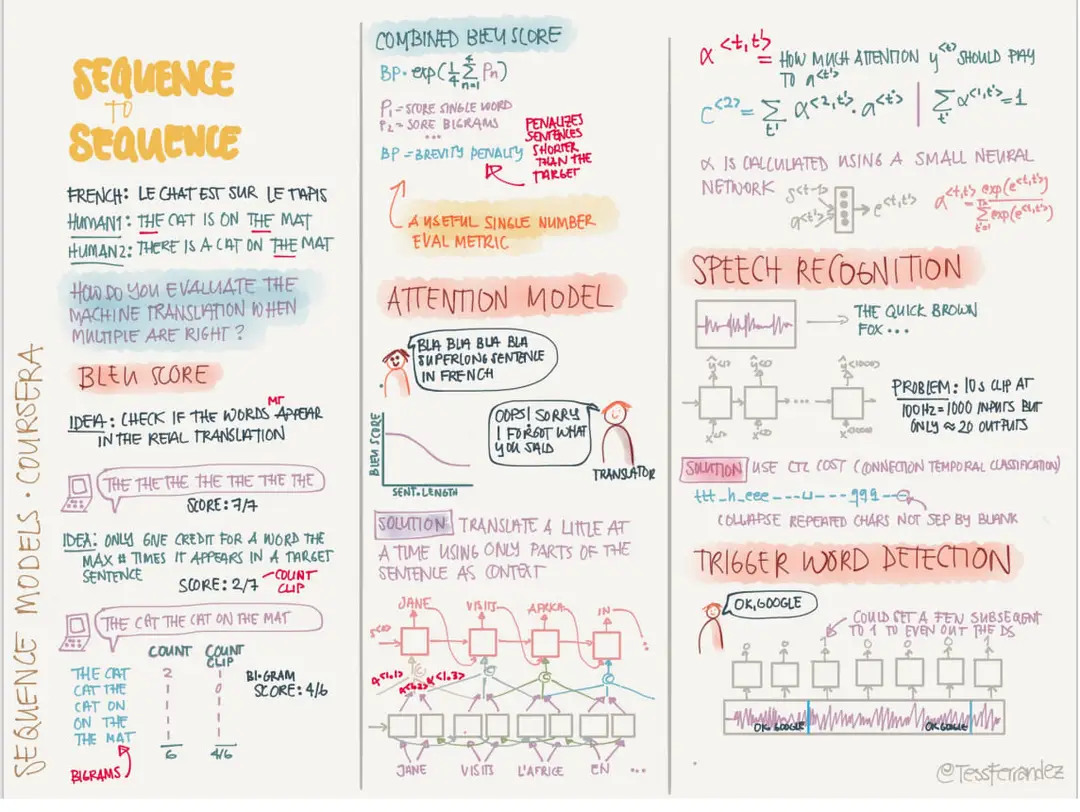 SEQUENCE MODELS · COURSERA
SEQUENCE
TO
SEQUENCE
FRENCH: LE CHAT EST SUR LE TAPIS
HUMAN1: THE CAT IS ON THE MAT
HUMAN2: THERE IS A CAT ON THE MAT
HOW DO YOU EVALUATE THE
MACHINE TRANSLATION WHEN
MULTIPLE ARE RIGHT?
BLEU SCORE
MT
IDEA: CHECK IF THE WORDS APPEAR
IN THE REAL TRANSLATION
THE THE THE THE THE THE THE
SCORE: 7/7
IDEA: ONLY GIVE CREDIT FOR A WORD THE
MAX # TIMES IT APPEARS IN A TARGET
SENTENCE
SCORE: 2/7
COUNT
CLIP
THE CAT THE CAT ON THE MAT
COUNT COUNT CLIP
THE CAT 2 1
CAT THE 1 0
CAT ON 1 1
ON THE 1 1
THE MAT 1 1
6 4/6
BI-GRAM
SCORE: 4/6
BIGRAMS
COMBINED BLEU SCORE
BP · exp(1/4 4∑n=1 Pn)
P1 = SCORE SINGLE WORD
P2 = SORE BIGRAMS
...
BP = BREVITY PENALTY
PENALIZES
SENTENCES
SHORTER
THAN THE
TARGET
A USEFUL SINGLE NUMBER
EVAL METRIC
ATTENTION MODEL
BLA BLA BLA BLA
SUPERLONG SENTENCE
IN FRENCH
OOPS! SORRY
I FORGOT WHAT
YOU SAID
TRANSLATOR
BLEU SCORE
SENT. LENGTH
SOLUTION TRANSLATE A LITTLE AT
A TIME USING ONLY PARTS OF THE
SENTENCE AS CONTEXT
JANE VISITS AFRICA IN
S<0>
C C C C
α<1,1> α<1,2> α<1,3>
JANE VISITS L'AFRICE EN ...
α<t,t'> = HOW MUCH ATTENTION y<t> SHOULD PAY
TO a<t'>
C<2> = ∑t' α<2,t'> · a<t'> | ∑t' α<1,t'> = 1
α IS CALCULATED USING A SMALL NEURAL
NETWORK
s<t-1>
a<t'>
e<t,t'>
a<t,t'> = exp(e<t,t'>) / ∑t'=1 exp(e<t,t'>)
SPEECH RECOGNITION
THE QUICK BROWN
FOX ...
ŷ<1> ŷ<2> ŷ<1000>
...
x<1> x<2> x<1000>
PROBLEM: 10s CLIP AT
100Hz = 1000 INPUTS BUT
ONLY ≈ 20 OUTPUTS
SOLUTION USE CTC COST (CONNECTION TEMPORAL CLASSIFICATION)
ttt_h_eee---u---qqq--
COLLAPSE REPEATED CHARS NOT SEP BY BLANK
TRIGGER WORD DETECTION
OK, GOOGLE
COULD SET A FEW SUBSEQENT
TO 1 TO EVEN OUT THE DS
0 0 1 0 0 0 1
OK, GOOGLE OK GOOGLE
@TessFerrandez